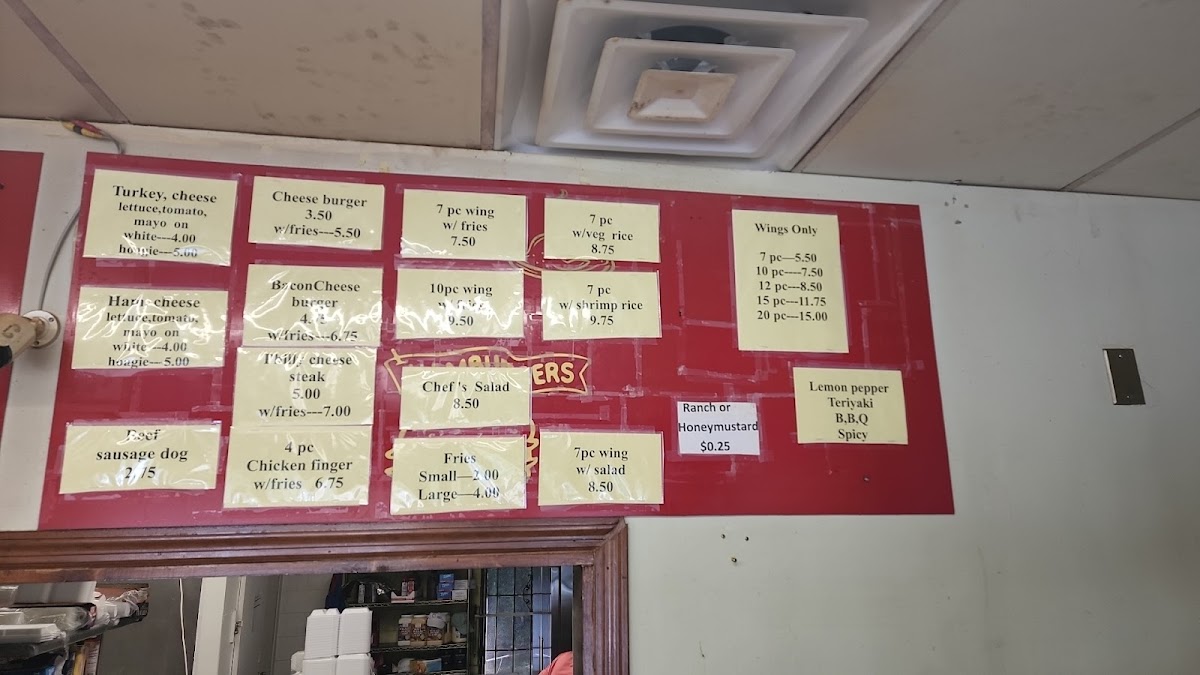 Turkey, cheese
lettuce,tomato,
mayo on
white---4.00
hoagie---5.00
Ham, cheese
lettuce,tomato,
mayo on
white---4.00
hoagie---5.00
Beef
sausage dog
2.75
Cheese burger
3.50
w/fries---5.50
BaconCheese
burger
w/fries---6.75
Philly cheese
steak
5.00
w/fries---7.00
4 pc
Chicken finger
w/fries 6.75
7 pc wing
w/ fries
7.50
10pc wing
w/ fries
9.50
ERS
Chef's Salad
8.50
Fries
Small—2.00
Large—4.00
7 pc
w/veg rice
8.75
7 pc
w/ shrimp rice
9.75
7pc wing
w/ salad
8.50
Wings Only
7 pc—5.50
10 pc----7.50
12 pc---8.50
15 pc---11.75
20 pc---15.00
Ranch or
Honeymustard
$0.25
Lemon pepper
Teriyaki
B,B,Q
Spicy